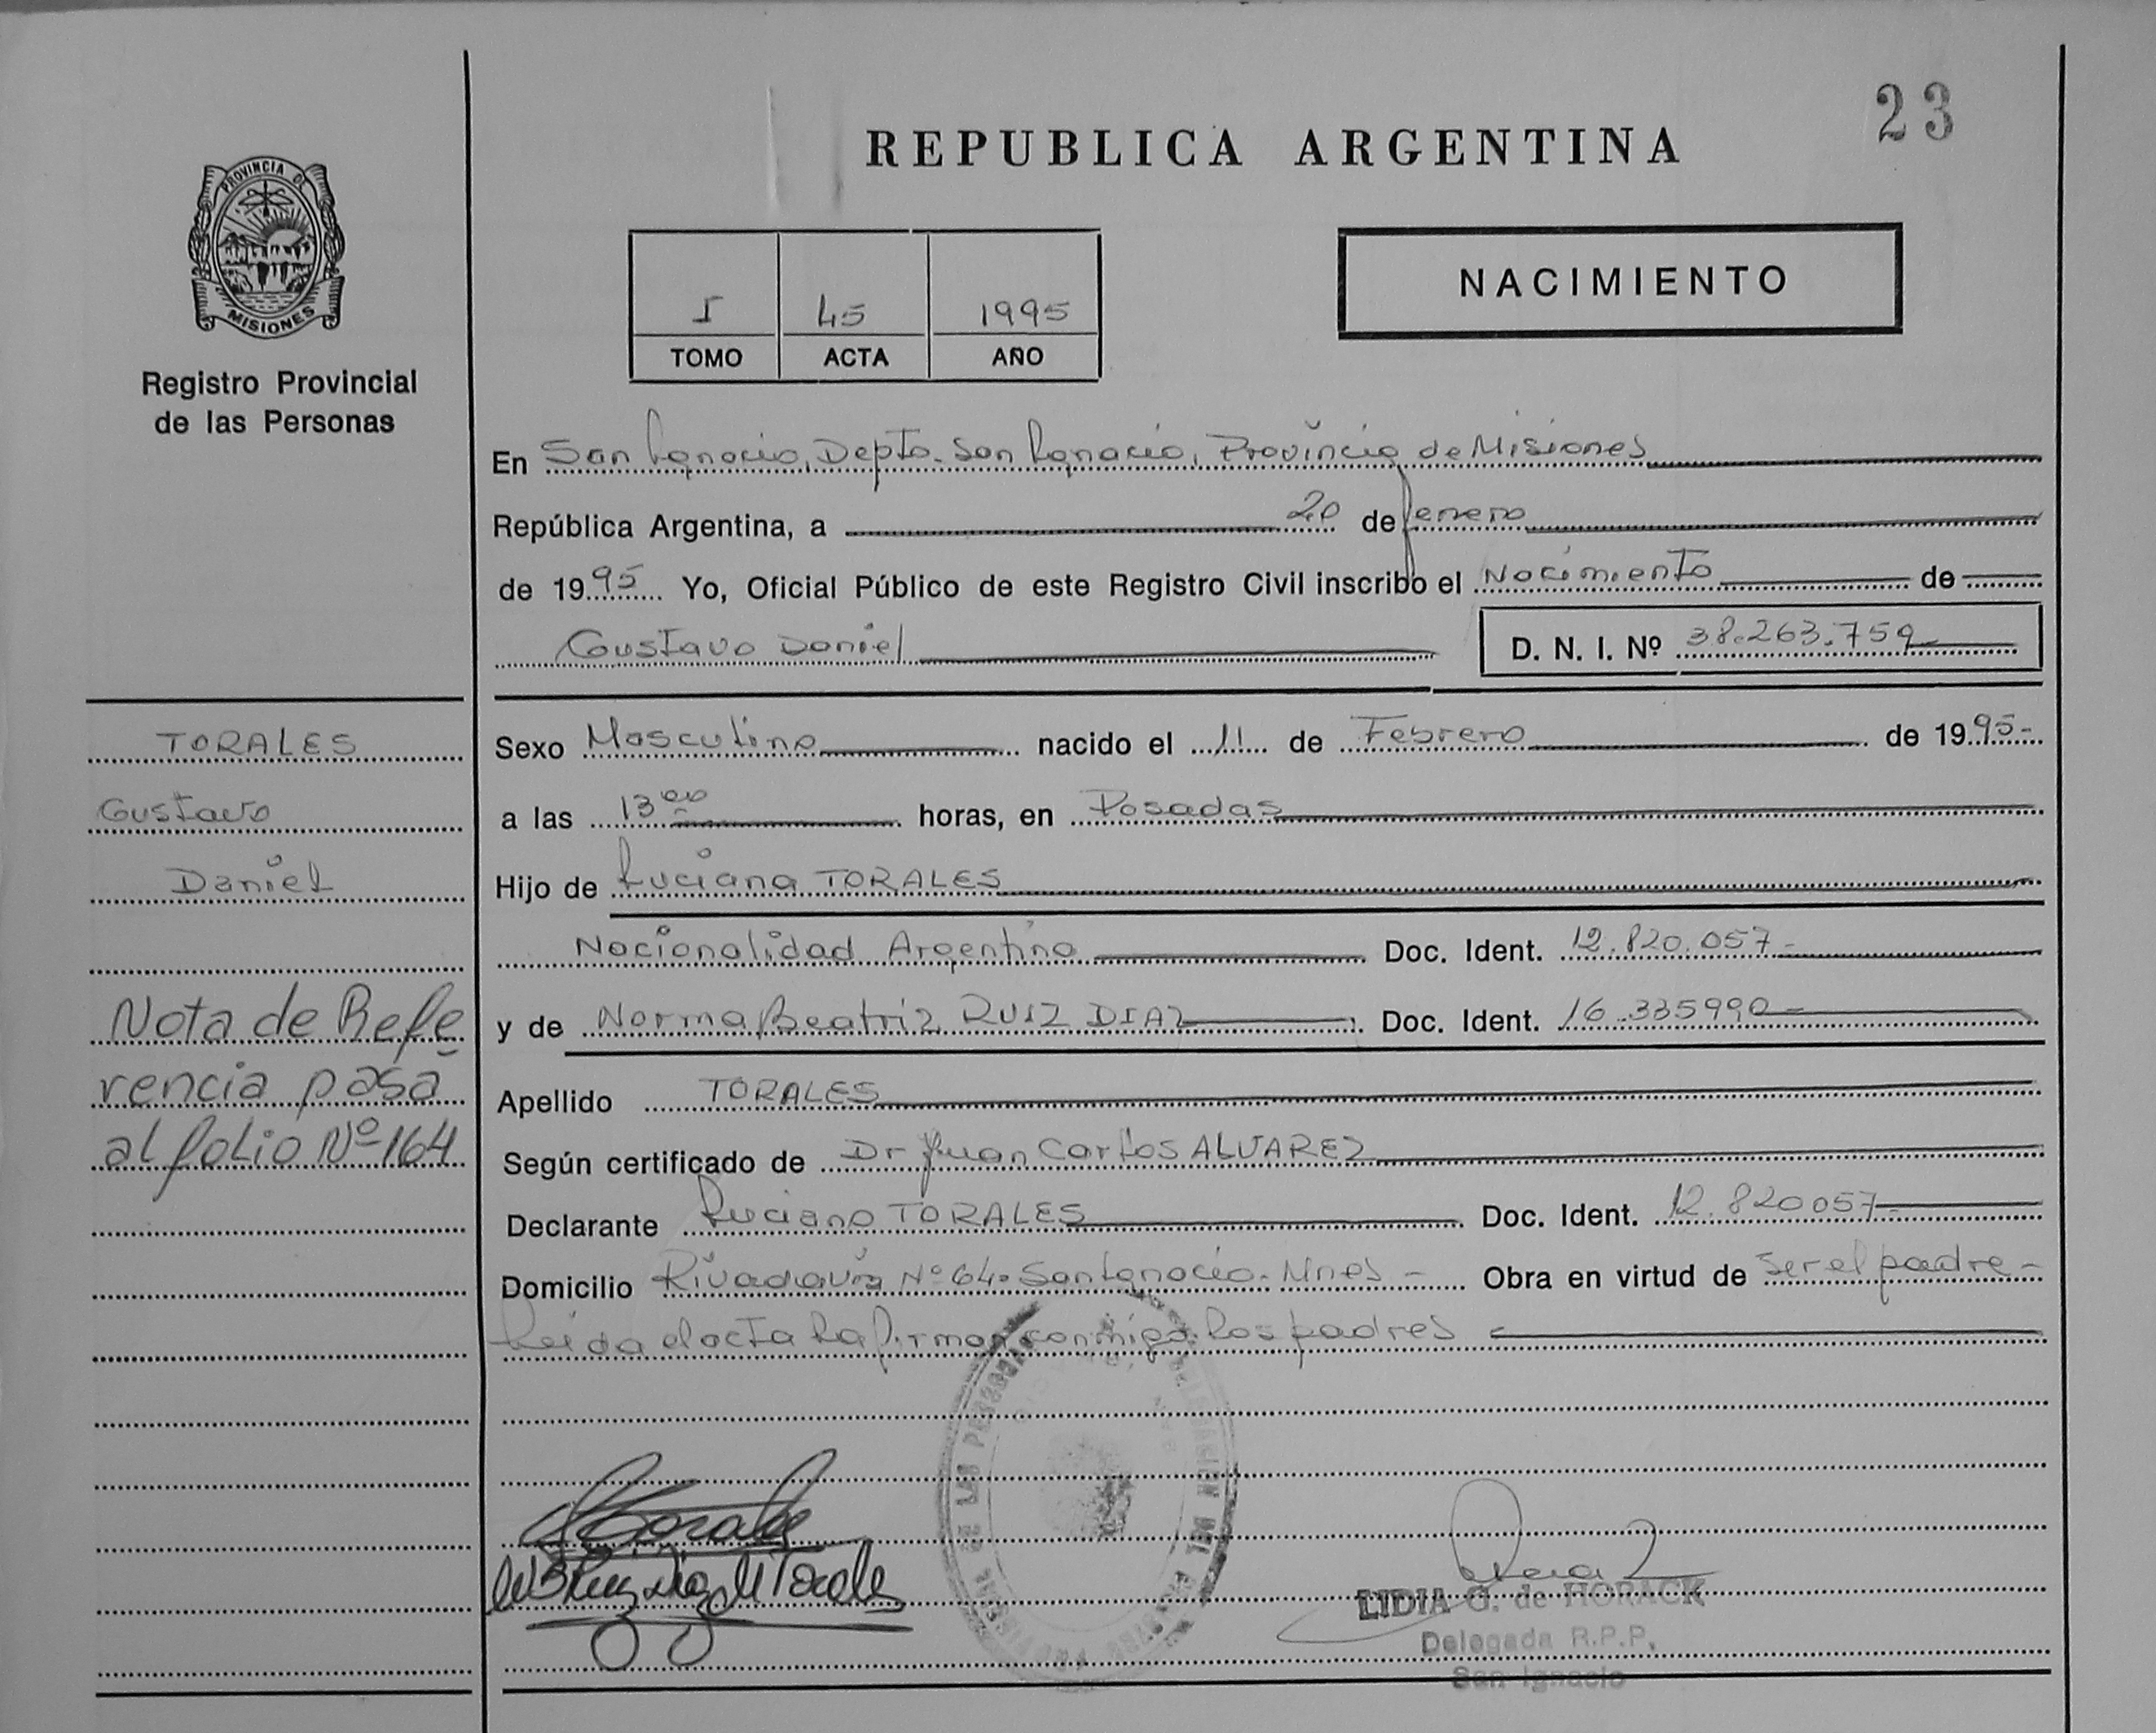 23
REPUBLICA ARGENTINA
PROVINCIA DE
MISIONES
Registro Provincial
de las Personas
I 45 1995
TOMO ACTA AÑO
NACIMIENTO
En San Ignacio, Depto. San Ignacio, Provincia de Misiones
República Argentina, a 20 de enero
de 1995 Yo, Oficial Público de este Registro Civil inscribo el Nacimiento de
Gustavo Daniel D. N. I. Nº 38.263.759
TORALES
Gustavo
Daniel
Nota de Refe
rencia pasa
al folio Nº 164
Sexo Masculino nacido el 11 de Febrero de 1995-
a las 13 00 horas, en Posadas
Hijo de Luciana TORALES
Nacionalidad Argentina Doc. Ident. 12.820.057-
y de Norma Beatriz RUIZ DIAZ Doc. Ident. 16.335990
Apellido TORALES
Según certificado de Dr Juan Carlos ALVAREZ
Declarante Luciano TORALES Doc. Ident. 12.820057
Domicilio Rivadavia Nº 64. San Ignacio. Mnes - Obra en virtud de ser el padre -
Leida el acta la firman conmigo los padres
LIDIA G. de HORACK
Delegada R.P.P.
San Ignacio